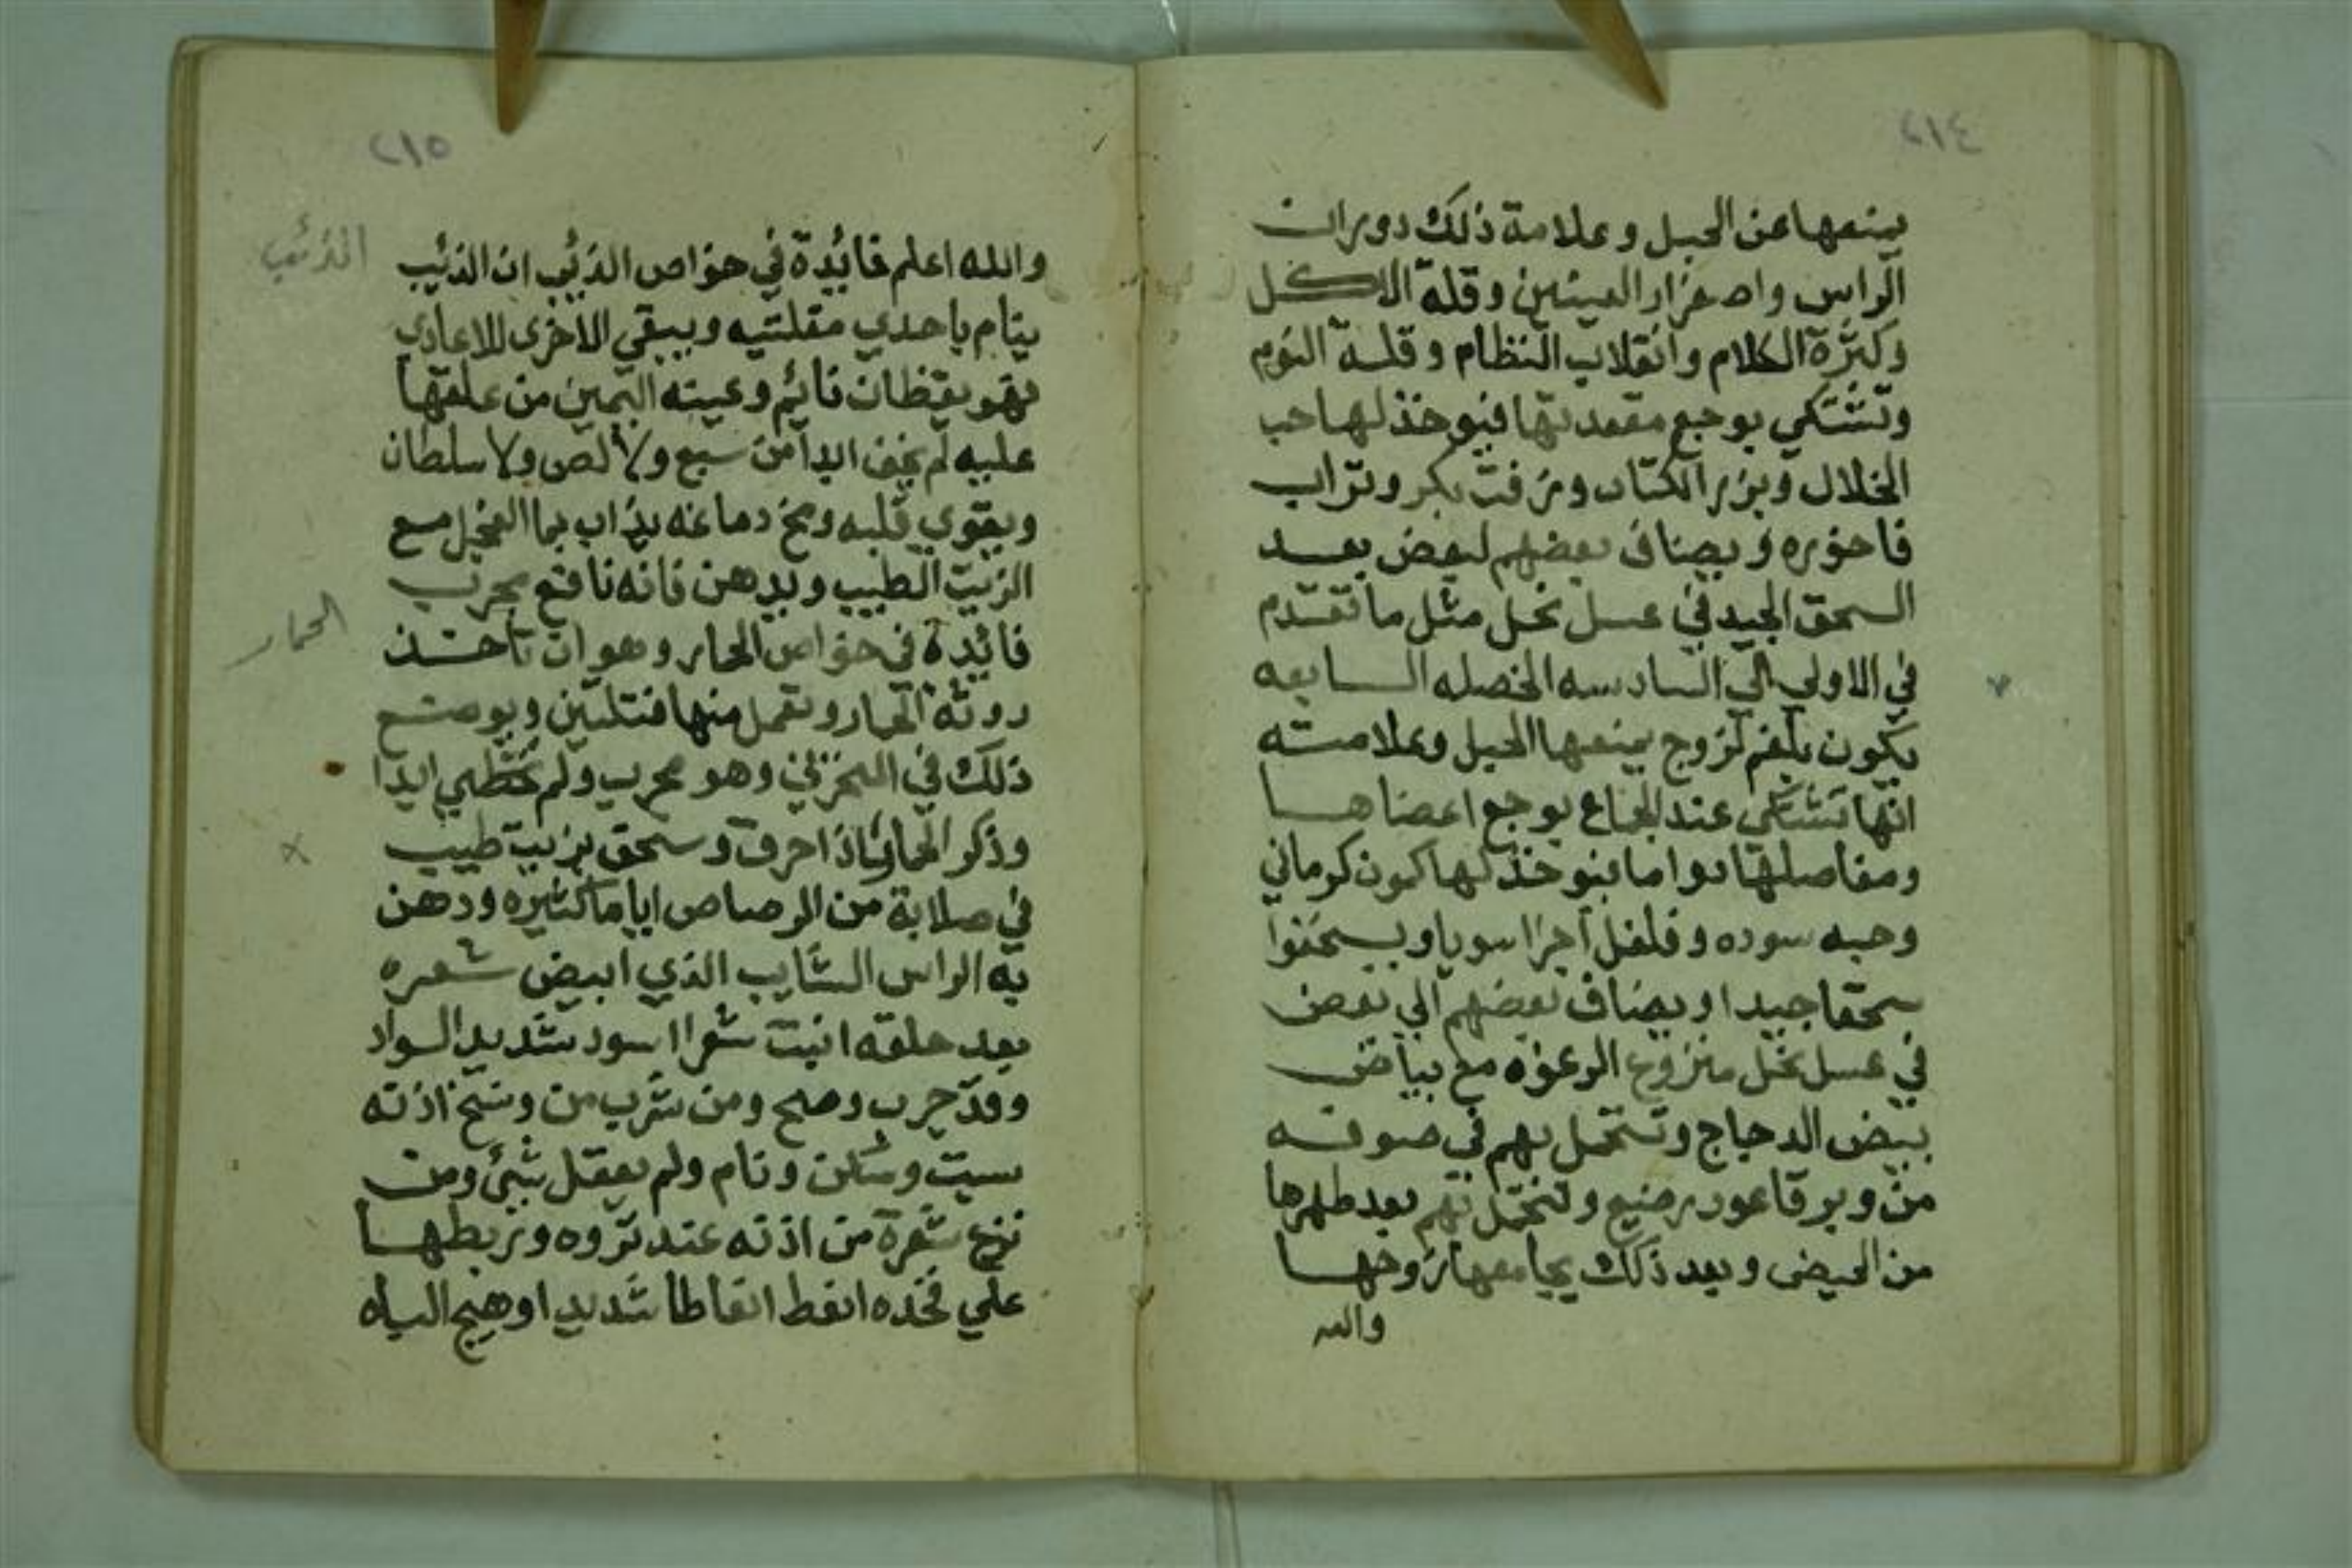 ٢١٤
يمنعها عن الحبل وعلامة ذلك دوران
الراس واصفرار العينين وقلة الاكل
وكثرة الكلام وانقلاب النظام وقلة النوم
وتشتكي بوجع مقعدتها فيوخذ لها حب
الخلال وبزر الكتان وزفت بكر وتراب
فاخوره ويضاف بعضهم لبعض بعد
السحق الجيد في عسل نحل مثل ما تقدم
في الاولي الي السادسه الخصله السابعه
يكون بلغم لزوج يمنعها الحبل وعلامته
انها تشتكي عند الجماع بوجع اعضاها
ومفاصلها دواما فيوخذ لها كمون كرماني
وحبه سوده وفلفل اجزا سويا ويسحقوا
سحقا جيدا ويضاف بعضهم الي بعض
في عسل نحل منزوع الرغوه مع بياض
بيض الدجاج وتستحمل بهم في صوفه
من وبر قاعود رضيع ولتحمل بهم بعد طهرها
من الحيض وبعد ذلك يجامعها زوجها
والله
٢١٥
والله اعلم فائدة في خواص الذئب ان الذئب
الذئب
ينام باحدي مقلتيه ويبقي الاخرى للاعادي
فهو يقظان نائم وعينه اليمين من علقها
عليه لم يخف ابدا من سبع ولا لص ولا سلطان
ويقوي قلبه ومخ دماغه يذاب بما الفجل مع
الزيت الطيب ويدهن فانه نافع مجرب
فائدة في خواص الحمار وهو ان تاخذ
الحمار
روثة الحمار وتعمل منها فتلتين ويوضع
ذلك في المنخرين وهو مجرب ولم يخطي ابدا
وذكر الحمار اذا احرق وسحق بزيت طيب
في صلابة من الرصاص اياما كثيره ودهن
به الراس الشايب الذي ابيض شعره
بعد حلقه انبت شعرا اسود شديد السواد
وقد جرب وصح ومن شرب من وسخ اذنه
سبت وسكن ونام ولم يعقل شيئ ومن
نزع شعرة من اذنه عند نزوه وربطها
علي فخده انعط انعاطا شديدا وهيج الباه